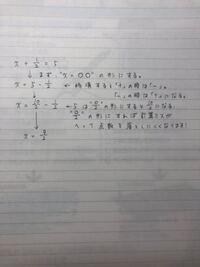 x + 1/2 = 5
↓ まず、"x = ○○" の形にする。
x = 5 - 1/2 ← 移項すると「+」の時は「-」。
「-」の時は「+」になる。
x = 10/2 - 1/2 ← 5は"○/2"の形にすると10/2になる。
"○/2"の形にすれば計算ミスが
へって点数を落としにくくなります!
x = 9/2